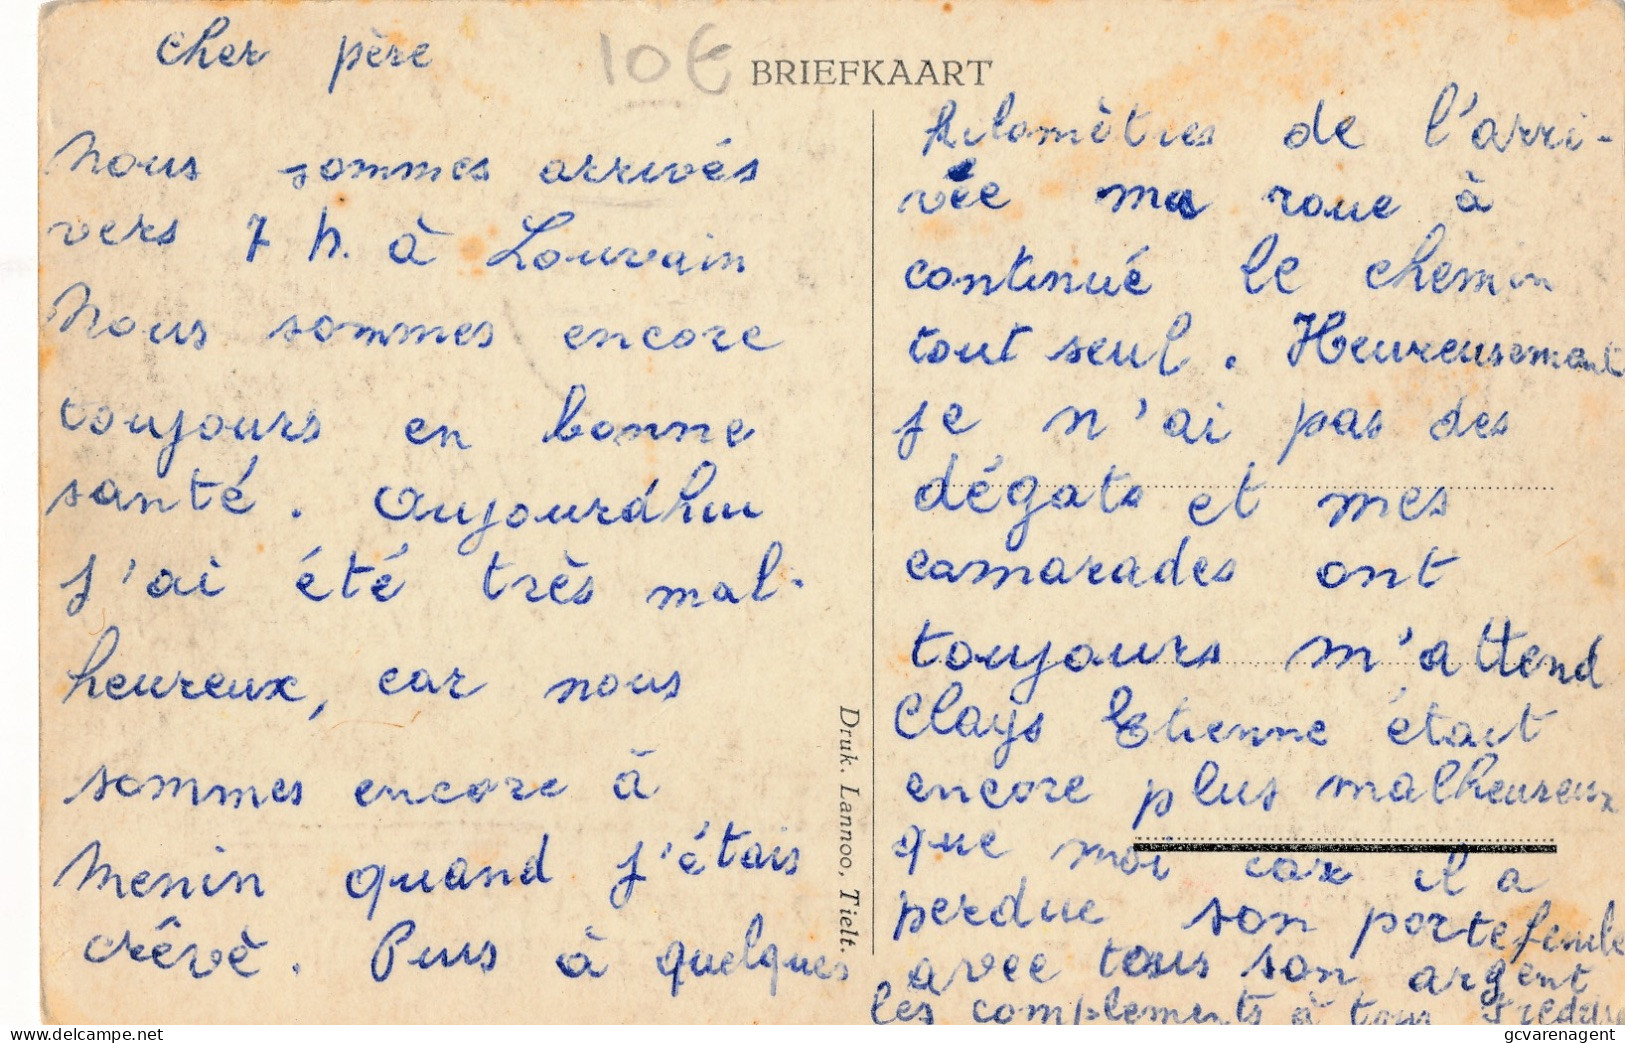 cher père
10€
BRIEFKAART
Nous sommes arrivés
vers 7 h. à Louvain
Nous sommes encore
toujours en bonne
santé. Aujourdhui
j'ai été très mal-
heureux, car nous
sommes encore à
Menin quand j'étais
crêvè. Puis à quelques
Druk. Lannoo, Tielt.
kilomètres de l'arri-
vée ma roue à
continué le chemin
tout seul. Heureusement
je n'ai pas des
dégats et mes
camarades ont
toujours m'attend
Clays Etienne était
encore plus malheureux
que moi car il a
perdue son portefeuille
avec tous son argent
les complements à tous
delcampe.net
gcvarenagent